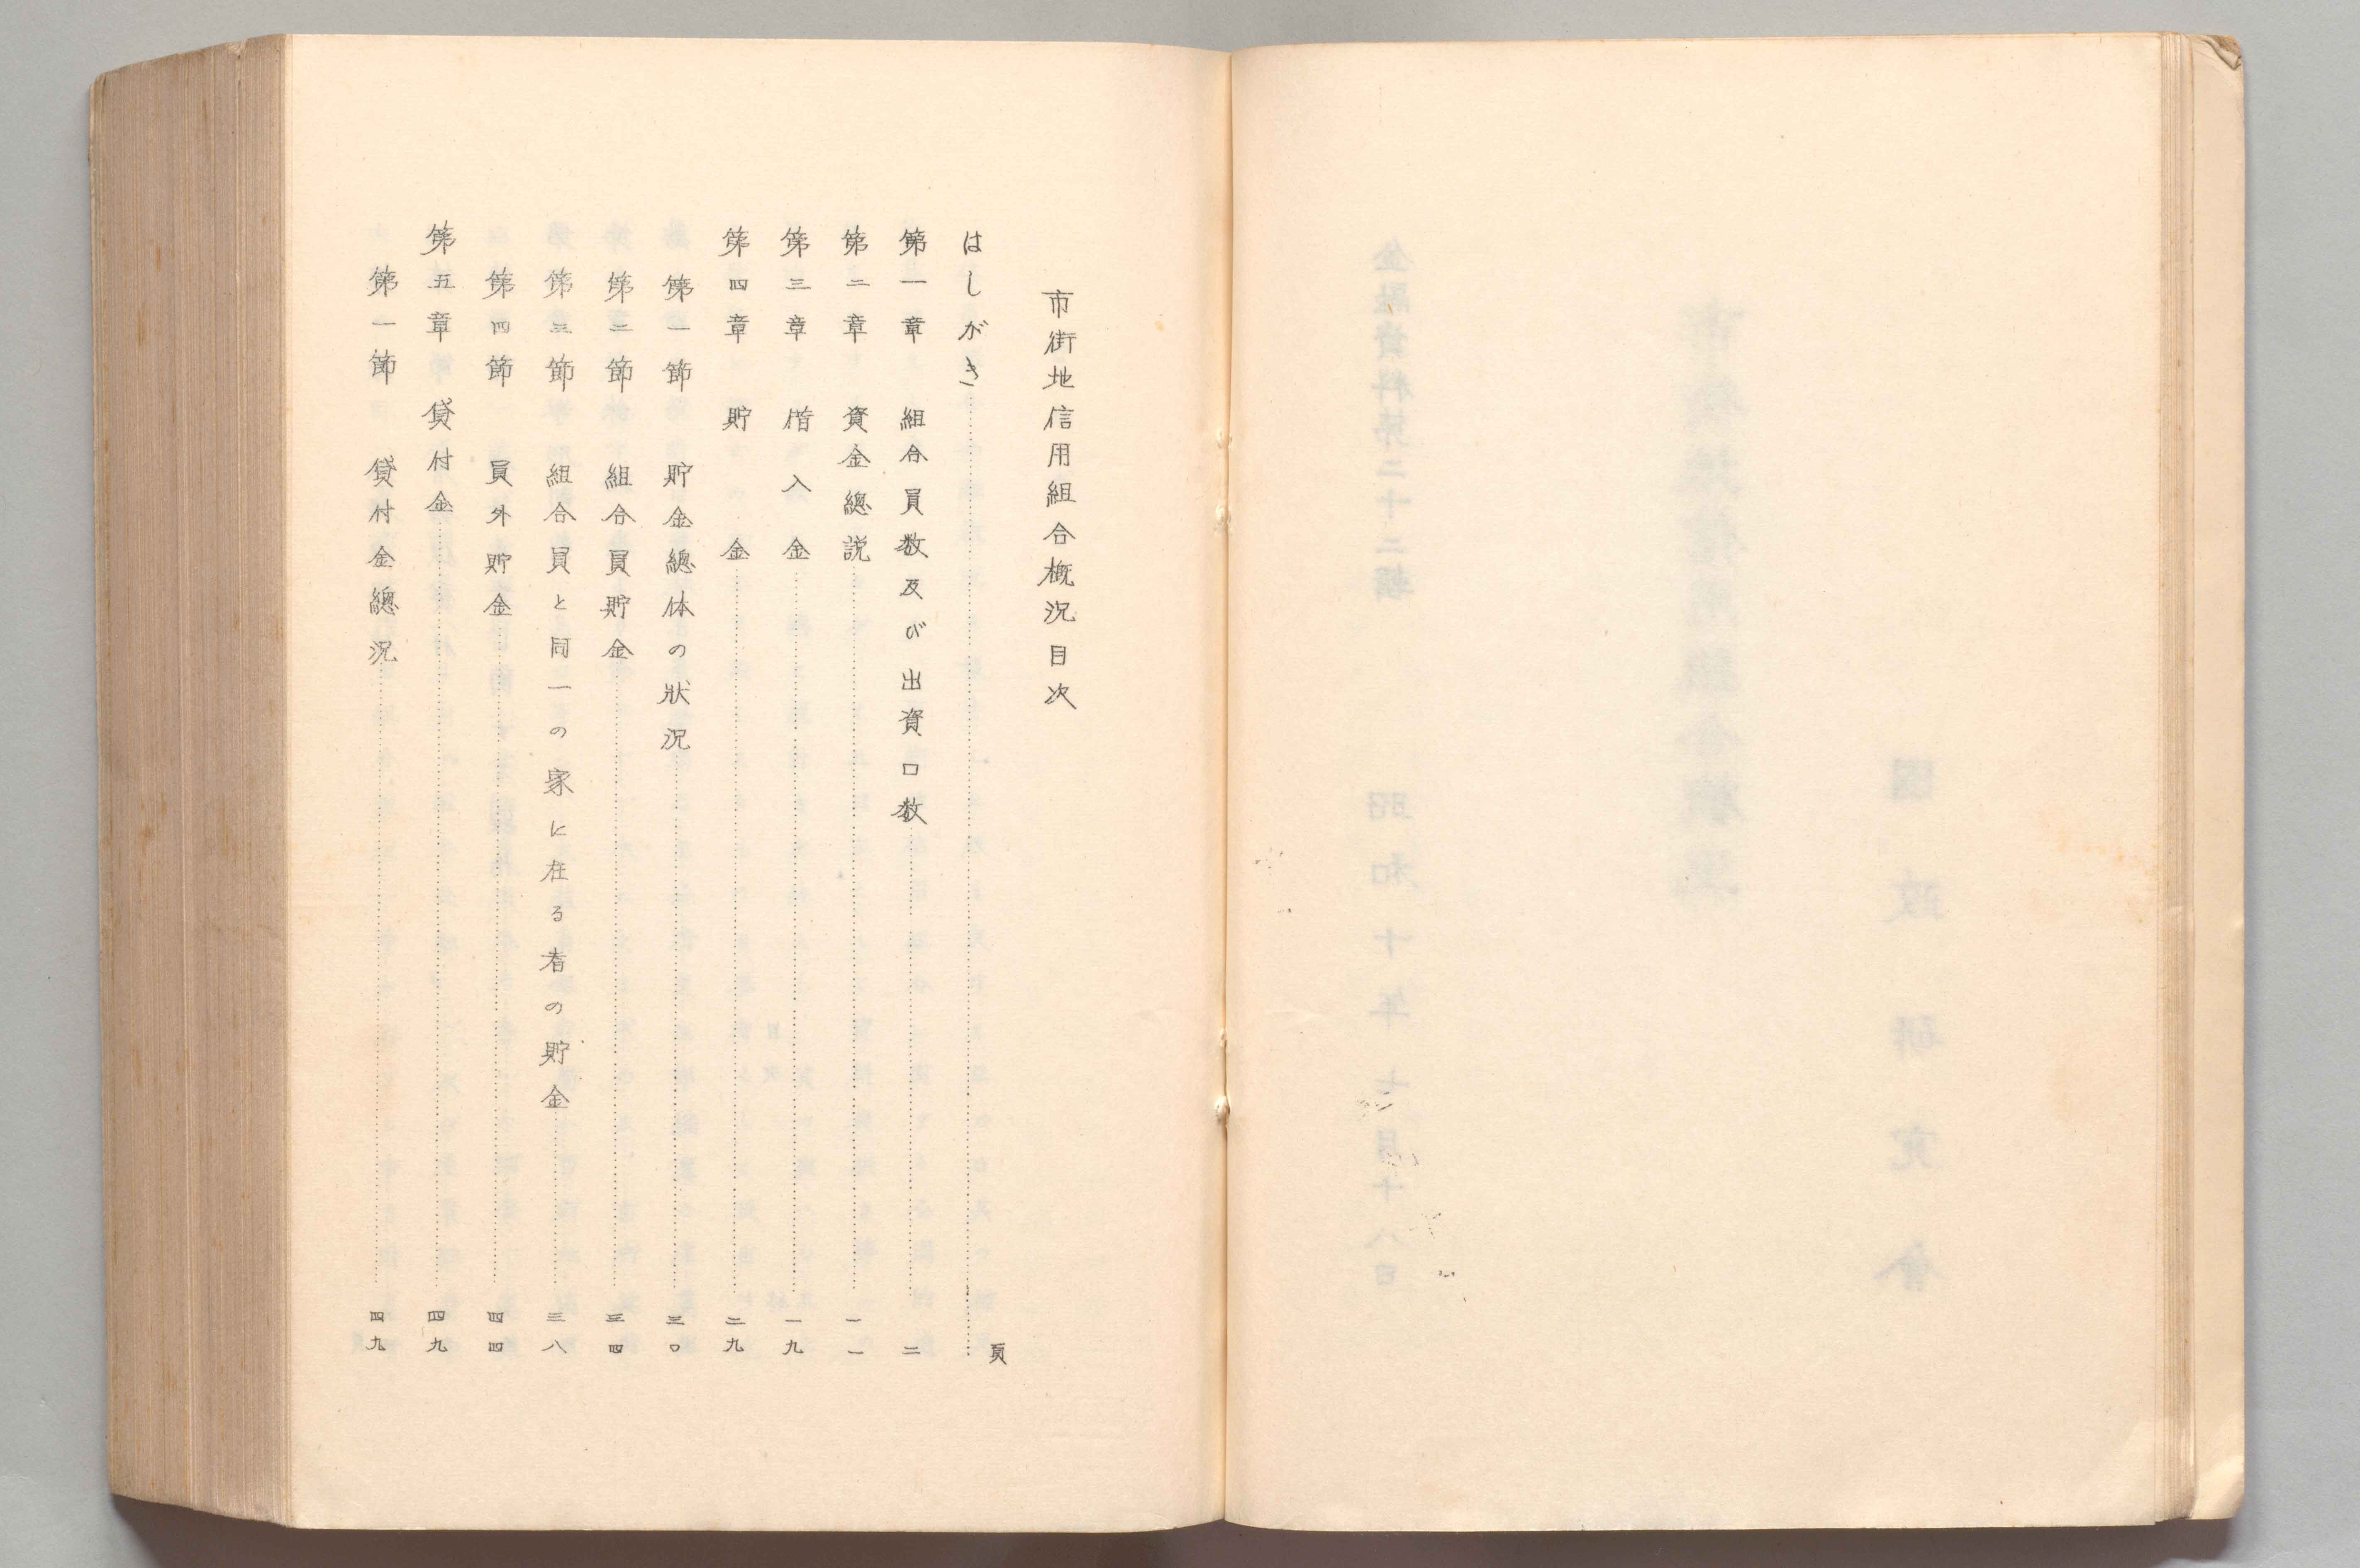 市街地信用組合概況目次
頁
はしがき…………
第一章 組合員数及び出資口数…………二
第二章 資金總説…………一一
第三章 借入金…………一九
第四章 貯金…………二九
第一節 貯金總体の狀況…………三〇
第二節 組合員貯金…………三四
第三節 組合員と同一の家に在る者の貯金…………三八
第四節 員外貯金…………四四
第五章 貸付金…………四九
第一節 貸付金總況…………四九